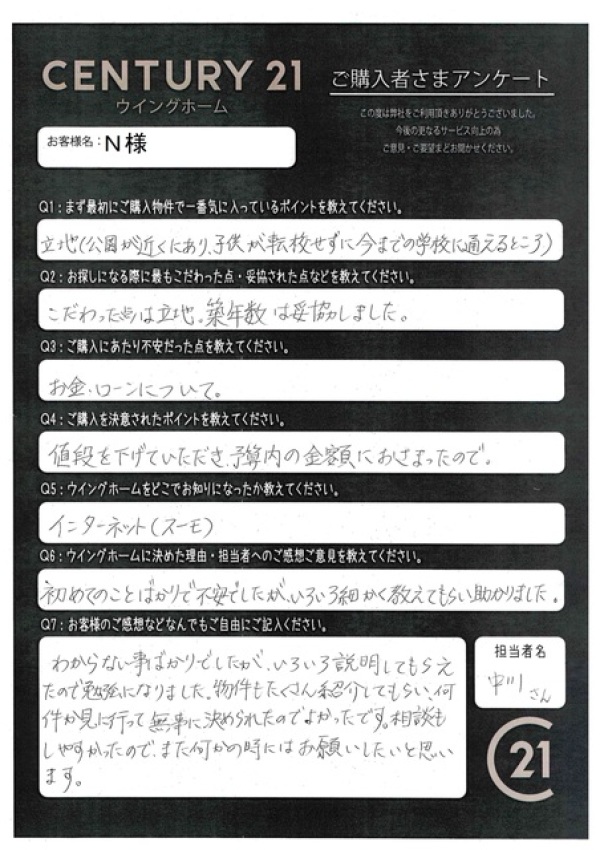 CENTURY 21
ウイングホーム
ご購入者さまアンケート
この度は弊社をご利用頂きありがとうございました。
今後の更なるサービス向上の為
ご意見・ご要望まどお聞かせください。
お客様名：N様
Q1：まず最初にご購入物件で一番気に入っているポイントを教えてください。
立地(公園が近くにあり、子供が転校せずに今までの学校に通えるところ)
Q2：お探しになる際に最もこだわった点・妥協された点などを教えてください。
こだわった点は立地。築年数は妥協しました。
Q3：ご購入にあたり不安だった点を教えてください。
お金、ローンについて。
Q4：ご購入を決意されたポイントを教えてください。
値段を下げていただき、予算内の金額におさまったので。
Q5：ウイングホームをどこでお知りになったか教えてください。
インターネット(スーモ)
Q6：ウイングホームに決めた理由・担当者へのご感想ご意見を教えてください。
初めてのことばかりで不安でしたが、いろいろ細かく教えてもらい助かりました。
Q7：お客様のご感想などなんでもご自由にご記入ください。
わからない事ばかりでしたが、いろいろ説明してもらえ
たので勉強になりました。物件もたくさん紹介してもらい、何
件か見に行って無事に決められたのでよかったです。相談も
しやすかったので、また何かの時にはお願いしたいと思い
ます。
担当者名
中川さん
C21